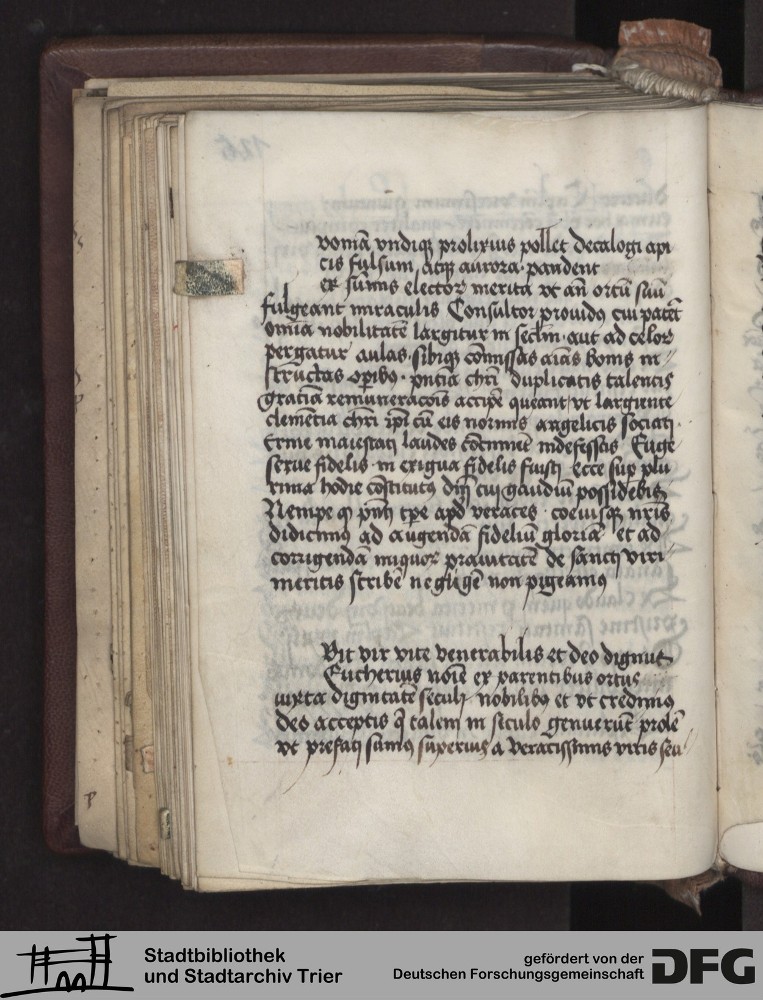 vomā vndiqꝫ prolixius pollet decalogi api
cis fulsum atqꝫ aurora pandent
ex sūmis elector merita vt an̄ ortū suū
fulgeant miraculis Consultor prouidꝰ cui patet
omīa nobilitatē largitur in sēclm aut ad celoꝝ
pergatur aulas sibiqꝫ cōmissas aīas bonis in
structas opibꝰ pn̄tia chri duplicatis talentis
gratia remuneracōis accipe queant vt largiente
clemētia chri ipī cū eis normis angelicis sociati
maiestati laudes indefessis Euge
serue fidelis in exigua fidelis fuisti ecce sup plu
rima hodie cōstitutꝰ cui gaudiū possidebis
Nempe pn̄ti tpe apd veraces coeuisqꝫ nr̄is
didicimus ad augendā fideliū gloriā et ad
corrigendā iniquoꝝ prauitatē de sancti viri
meritis scribē negligēt non pigeamꝰ
Vit vir vite venerabilis et deo dignus
Eucherius noīe ex parentibus ortus
iuxta dignitatē seculi nobilibꝰ et vt credimꝰ
deo acceptis q̄ talem in seculo genuerūt prolē
vt prefati sumꝰ superius a veracissimis viris seu
126
Stadtbibliothek
und Stadtarchiv Trier
gefördert von der
Deutschen Forschungsgemeinschaft
DFG